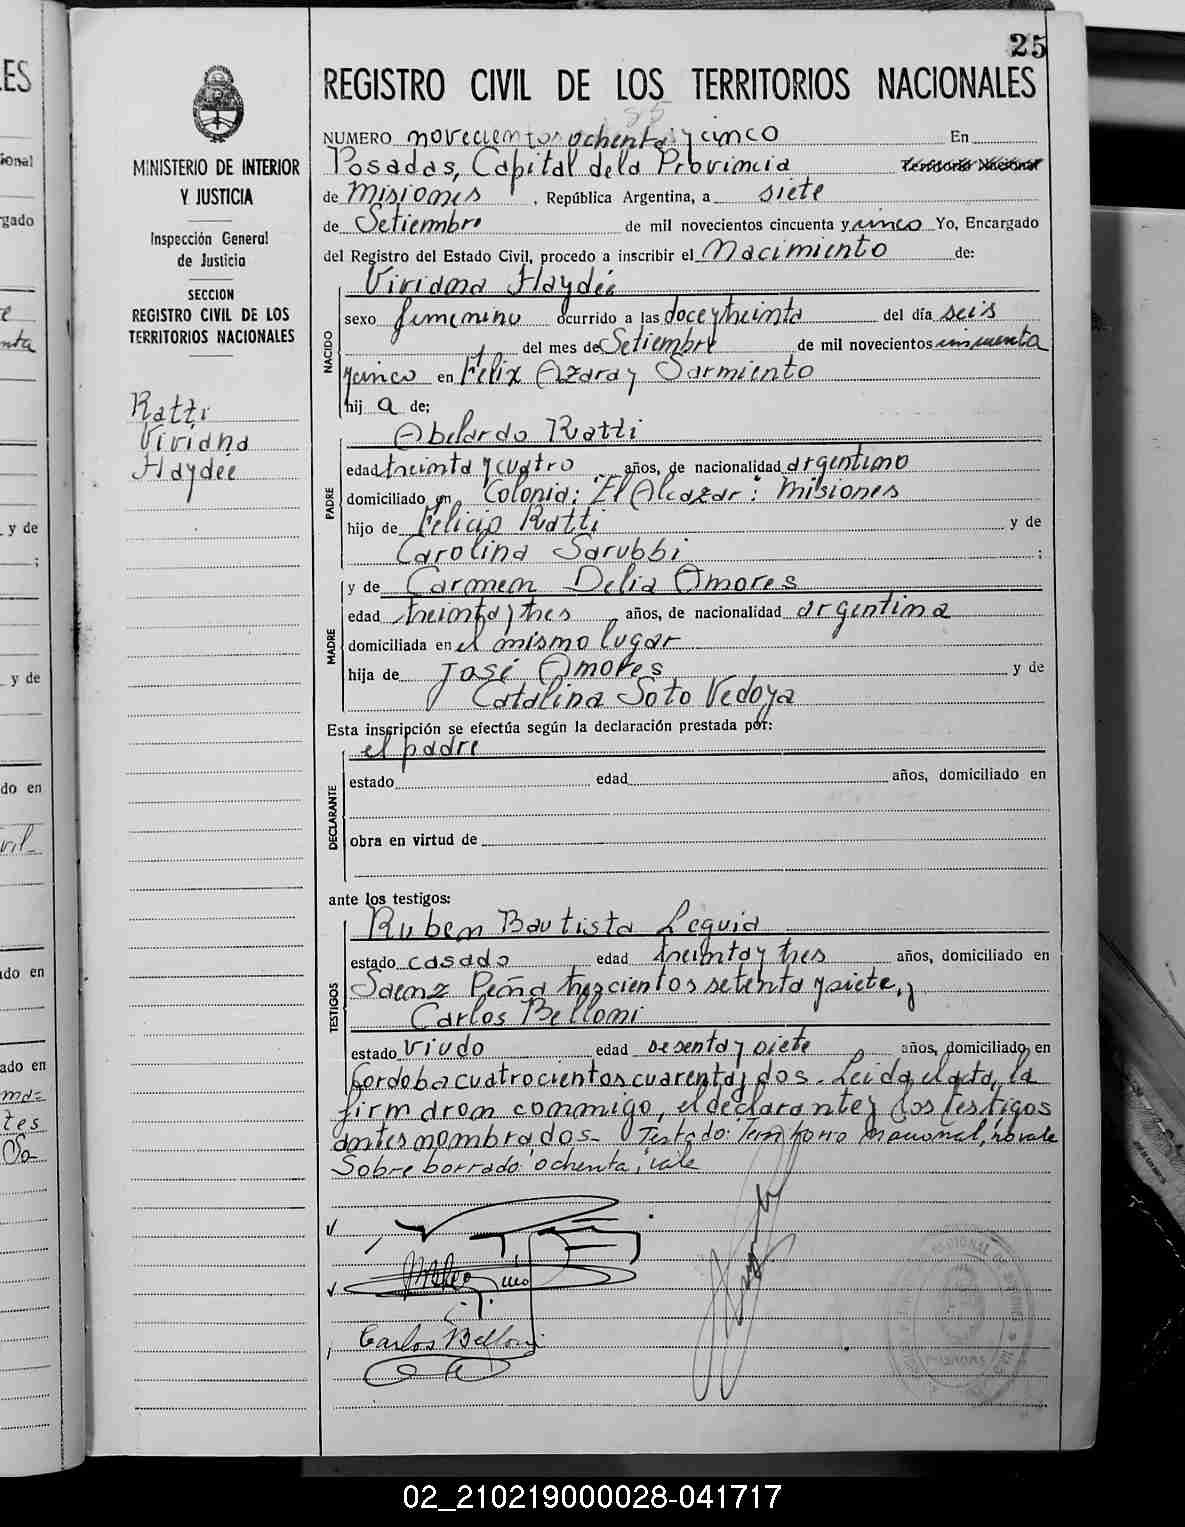 25
REGISTRO CIVIL DE LOS TERRITORIOS NACIONALES
NUMERO novecientos ochenta y cinco En
Posadas, Capital de la Provincia Territorio Nacional
de Misiones, República Argentina, a siete
de Setiembre de mil novecientos cincuenta y cinco Yo, Encargado
del Registro del Estado Civil, procedo a inscribir el Nacimiento de:
NACIDO
Viviana Haydée
sexo femenino ocurrido a las doce y treinta del día seis
del mes de Setiembre de mil novecientos cincuenta
y cinco en Félix Azara y Sarmiento
hij a de;
PADRE
Abelardo Ratti
edad treinta y cuatro años, de nacionalidad argentino
domiciliado en Colonia: "El Alcazar": Misiones
hijo de Felicio Ratti y de
Carolina Sarubbi ;
MADRE
y de Carmen Delia Amores
edad treinta y tres años, de nacionalidad argentina
domiciliada en el mismo lugar
hija de José Amores y de
Catalina Soto Vedoya
Esta inscripción se efectúa según la declaración prestada por:
DECLARANTE
el padre
estado edad años, domiciliado en
obra en virtud de
ante los testigos:
TESTIGOS
Ruben Bautista Leguia
estado casado edad treinta y tres años, domiciliado en
Saenz Peña trescientos setenta y siete, y
Carlos Belloni
estado viudo edad sesenta y siete años, domiciliado en
Cordoba cuatrocientos cuarenta y dos. Leida el acta, la
firmaron conmigo, el declarante y los testigos
antes nombrados- Testado: Territorio Nacional, no vale
Sobre borrado: ochenta, vale
Carlos Belloni
MINISTERIO DE INTERIOR
Y JUSTICIA
Inspección General
de Justicia
SECCION
REGISTRO CIVIL DE LOS
TERRITORIOS NACIONALES
Ratti
Viviana
Haydée
LES
ional
rgado
y de
;
y de
do en
vil-
do en
ado en
tes
02_210219000028-041717